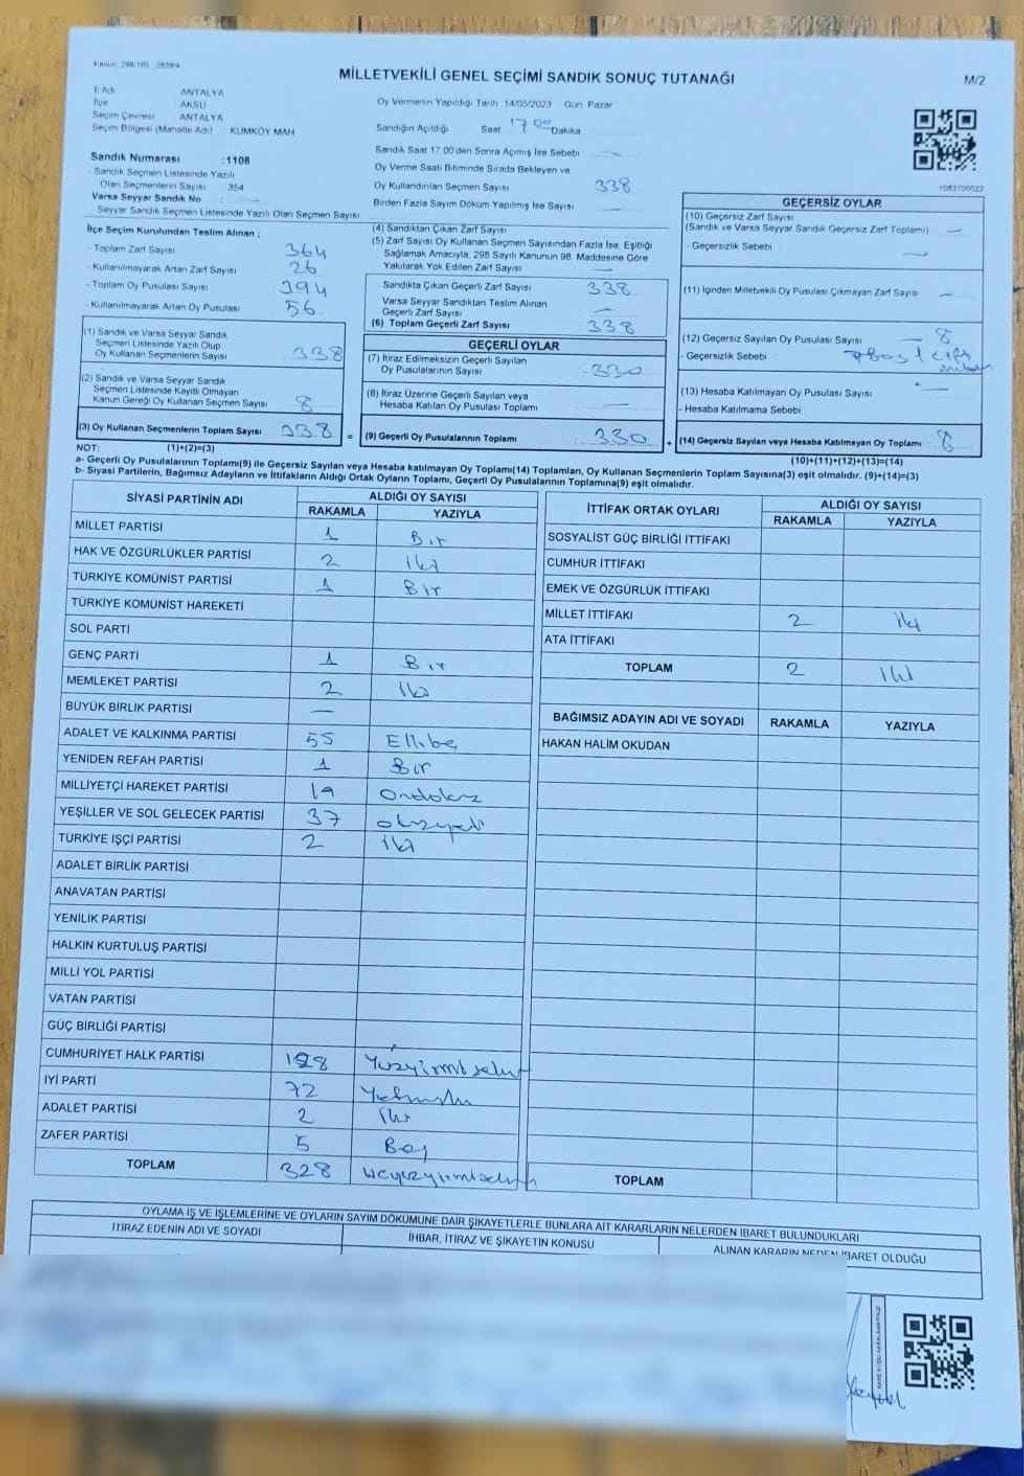 MİLLETVEKİLİ GENEL SEÇİMİ SANDIK SONUÇ TUTANAĞI
M/2
İl Adı ANTALYA
İlçe AKSU
Seçim Çevresi ANTALYA
Seçim Bölgesi (Mahalle Adı) KUMKÖY MAH
Oy Vermenin Yapıldığı Tarih 14/05/2023 Gün Pazar
Sandığın Açıldığı Saat 17 Dakika
Sandık Saat 17.00'den Sonra Açılmış İse Sebebi
Oy Verme Saati Bitiminde Sırada Bekleyen ve
Oy Kullandırılan Seçmen Sayısı 338
Birden Fazla Sayım Döküm Yapılmış İse Sayısı
Sandık Numarası :1108
Sandık Seçmen Listesinde Yazılı
Olan Seçmenlerin Sayısı 354
Varsa Seyyar Sandık No
Seyyar Sandık Seçmen Listesinde Yazılı Olan Seçmen Sayısı
İlçe Seçim Kurulundan Teslim Alınan :
- Toplam Zarf Sayısı 364
- Kullanılmayarak Artan Zarf Sayısı 26
- Toplam Oy Pusulası Sayısı 394
- Kullanılmayarak Artan Oy Pusulası 56
(1) Sandık ve Varsa Seyyar Sandık
Seçmen Listesinde Yazılı Olup
Oy Kullanan Seçmenlerin Sayısı 338
(2) Sandık ve Varsa Seyyar Sandık
Seçmen Listesinde Kayıtlı Olmayan
Kanun Gereği Oy Kullanan Seçmen Sayısı 8
(3) Oy Kullanan Seçmenlerin Toplam Sayısı 338 =
(4) Sandıktan Çıkan Zarf Sayısı
(5) Zarf Sayısı Oy Kullanan Seçmen Sayısından Fazla İse, Eşitliği
Sağlamak Amacıyla, 298 Sayılı Kanunun 98. Maddesine Göre
Yakılarak Yok Edilen Zarf Sayısı —
Sandıkta Çıkan Geçerli Zarf Sayısı 338
Varsa Seyyar Sandıktan Teslim Alınan
Geçerli Zarf Sayısı —
(6) Toplam Geçerli Zarf Sayısı 338
GEÇERLİ OYLAR
(7) İtiraz Edilmeksizin Geçerli Sayılan
Oy Pusulalarının Sayısı 330
(8) İtiraz Üzerine Geçerli Sayılan veya
Hesaba Katılan Oy Pusulası Toplamı —
(9) Geçerli Oy Pusulalarının Toplamı 330 +
1083700522
GEÇERSİZ OYLAR
(10) Geçersiz Zarf Sayısı
(Sandık ve Varsa Seyyar Sandık Geçersiz Zarf Toplamı) —
- Geçersizlik Sebebi —
(11) İçinden Milletvekili Oy Pusulası Çıkmayan Zarf Sayısı —
(12) Geçersiz Sayılan Oy Pusulası Sayısı 8
- Geçersizlik Sebebi
(13) Hesaba Katılmayan Oy Pusulası Sayısı —
- Hesaba Katılmama Sebebi
(14) Geçersiz Sayılan veya Hesaba Katılmayan Oy Toplamı 8
NOT: (1)+(2)=(3)
(10)+(11)+(12)+(13)=(14)
a- Geçerli Oy Pusulalarının Toplamı(9) ile Geçersiz Sayılan veya Hesaba katılmayan Oy Toplamı(14) Toplamları, Oy Kullanan Seçmenlerin Toplam Sayısına(3) eşit olmalıdır. (9)+(14)=(3)
b- Siyasi Partilerin, Bağımsız Adayların ve İttifakların Aldığı Ortak Oyların Toplamı, Geçerli Oy Pusulalarının Toplamına(9) eşit olmalıdır.
SİYASİ PARTİNİN ADI ALDIĞI OY SAYISI
RAKAMLA YAZIYLA
MİLLET PARTİSİ 1 Bir
HAK VE ÖZGÜRLÜKLER PARTİSİ 2 İki
TÜRKİYE KOMÜNİST PARTİSİ 1 Bir
TÜRKİYE KOMÜNİST HAREKETİ
SOL PARTİ
GENÇ PARTİ 1 Bir
MEMLEKET PARTİSİ 2 İki
BÜYÜK BİRLİK PARTİSİ —
ADALET VE KALKINMA PARTİSİ 55 Ellibeş
YENİDEN REFAH PARTİSİ 1 Bir
MİLLİYETÇİ HAREKET PARTİSİ 19 Ondokuz
YEŞİLLER VE SOL GELECEK PARTİSİ 37 otuzyedi
TÜRKİYE İŞÇİ PARTİSİ 2 iki
ADALET BİRLİK PARTİSİ
ANAVATAN PARTİSİ
YENİLİK PARTİSİ
HALKIN KURTULUŞ PARTİSİ
MİLLİ YOL PARTİSİ
VATAN PARTİSİ
GÜÇ BİRLİĞİ PARTİSİ
CUMHURİYET HALK PARTİSİ 128 Yüzyirmisekiz
İYİ PARTİ 72 Yetmişiki
ADALET PARTİSİ 2 İki
ZAFER PARTİSİ 5 Beş
TOPLAM 328 üçyüzyirmisekiz
İTTİFAK ORTAK OYLARI ALDIĞI OY SAYISI
RAKAMLA YAZIYLA
SOSYALİST GÜÇ BİRLİĞİ İTTİFAKI
CUMHUR İTTİFAKI
EMEK VE ÖZGÜRLÜK İTTİFAKI
MİLLET İTTİFAKI 2 iki
ATA İTTİFAKI
TOPLAM 2 iki
BAĞIMSIZ ADAYIN ADI VE SOYADI RAKAMLA YAZIYLA
HAKAN HALİM OKUDAN
TOPLAM
OYLAMA İŞ VE İŞLEMLERİNE VE OYLARIN SAYIM DÖKÜMÜNE DAİR ŞİKAYETLERLE BUNLARA AİT KARARLARIN NELERDEN İBARET BULUNDUKLARI
İTİRAZ EDENİN ADI VE SOYADI
İHBAR, İTİRAZ VE ŞİKAYETİN KONUSU
ALINAN KARARIN NEDEN İBARET OLDUĞU